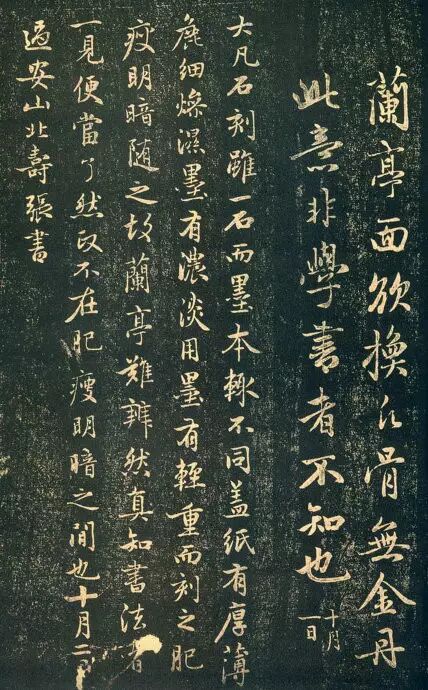 蘭亭面欲換凡骨無金丹
此意非學書者不知也十月一日
大凡石刻雖一石而墨本輙不同盖紙有厚薄
麁細燥濕墨有濃淡用墨有輕重而刻之肥
瘦明暗随之故蘭亭難辨然真知書法者
一見便當了然政不在肥瘦明暗之間也十月二日
過安山北壽張書